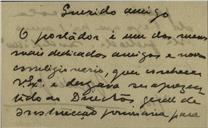 Querido amigo
O portador é um dos meus
mais dedicados amigos e nosso
correligionario, quer conhecer
V. Ex.ª e desejava ser apresen
tado ao Director geral de
Instrucção primaria para